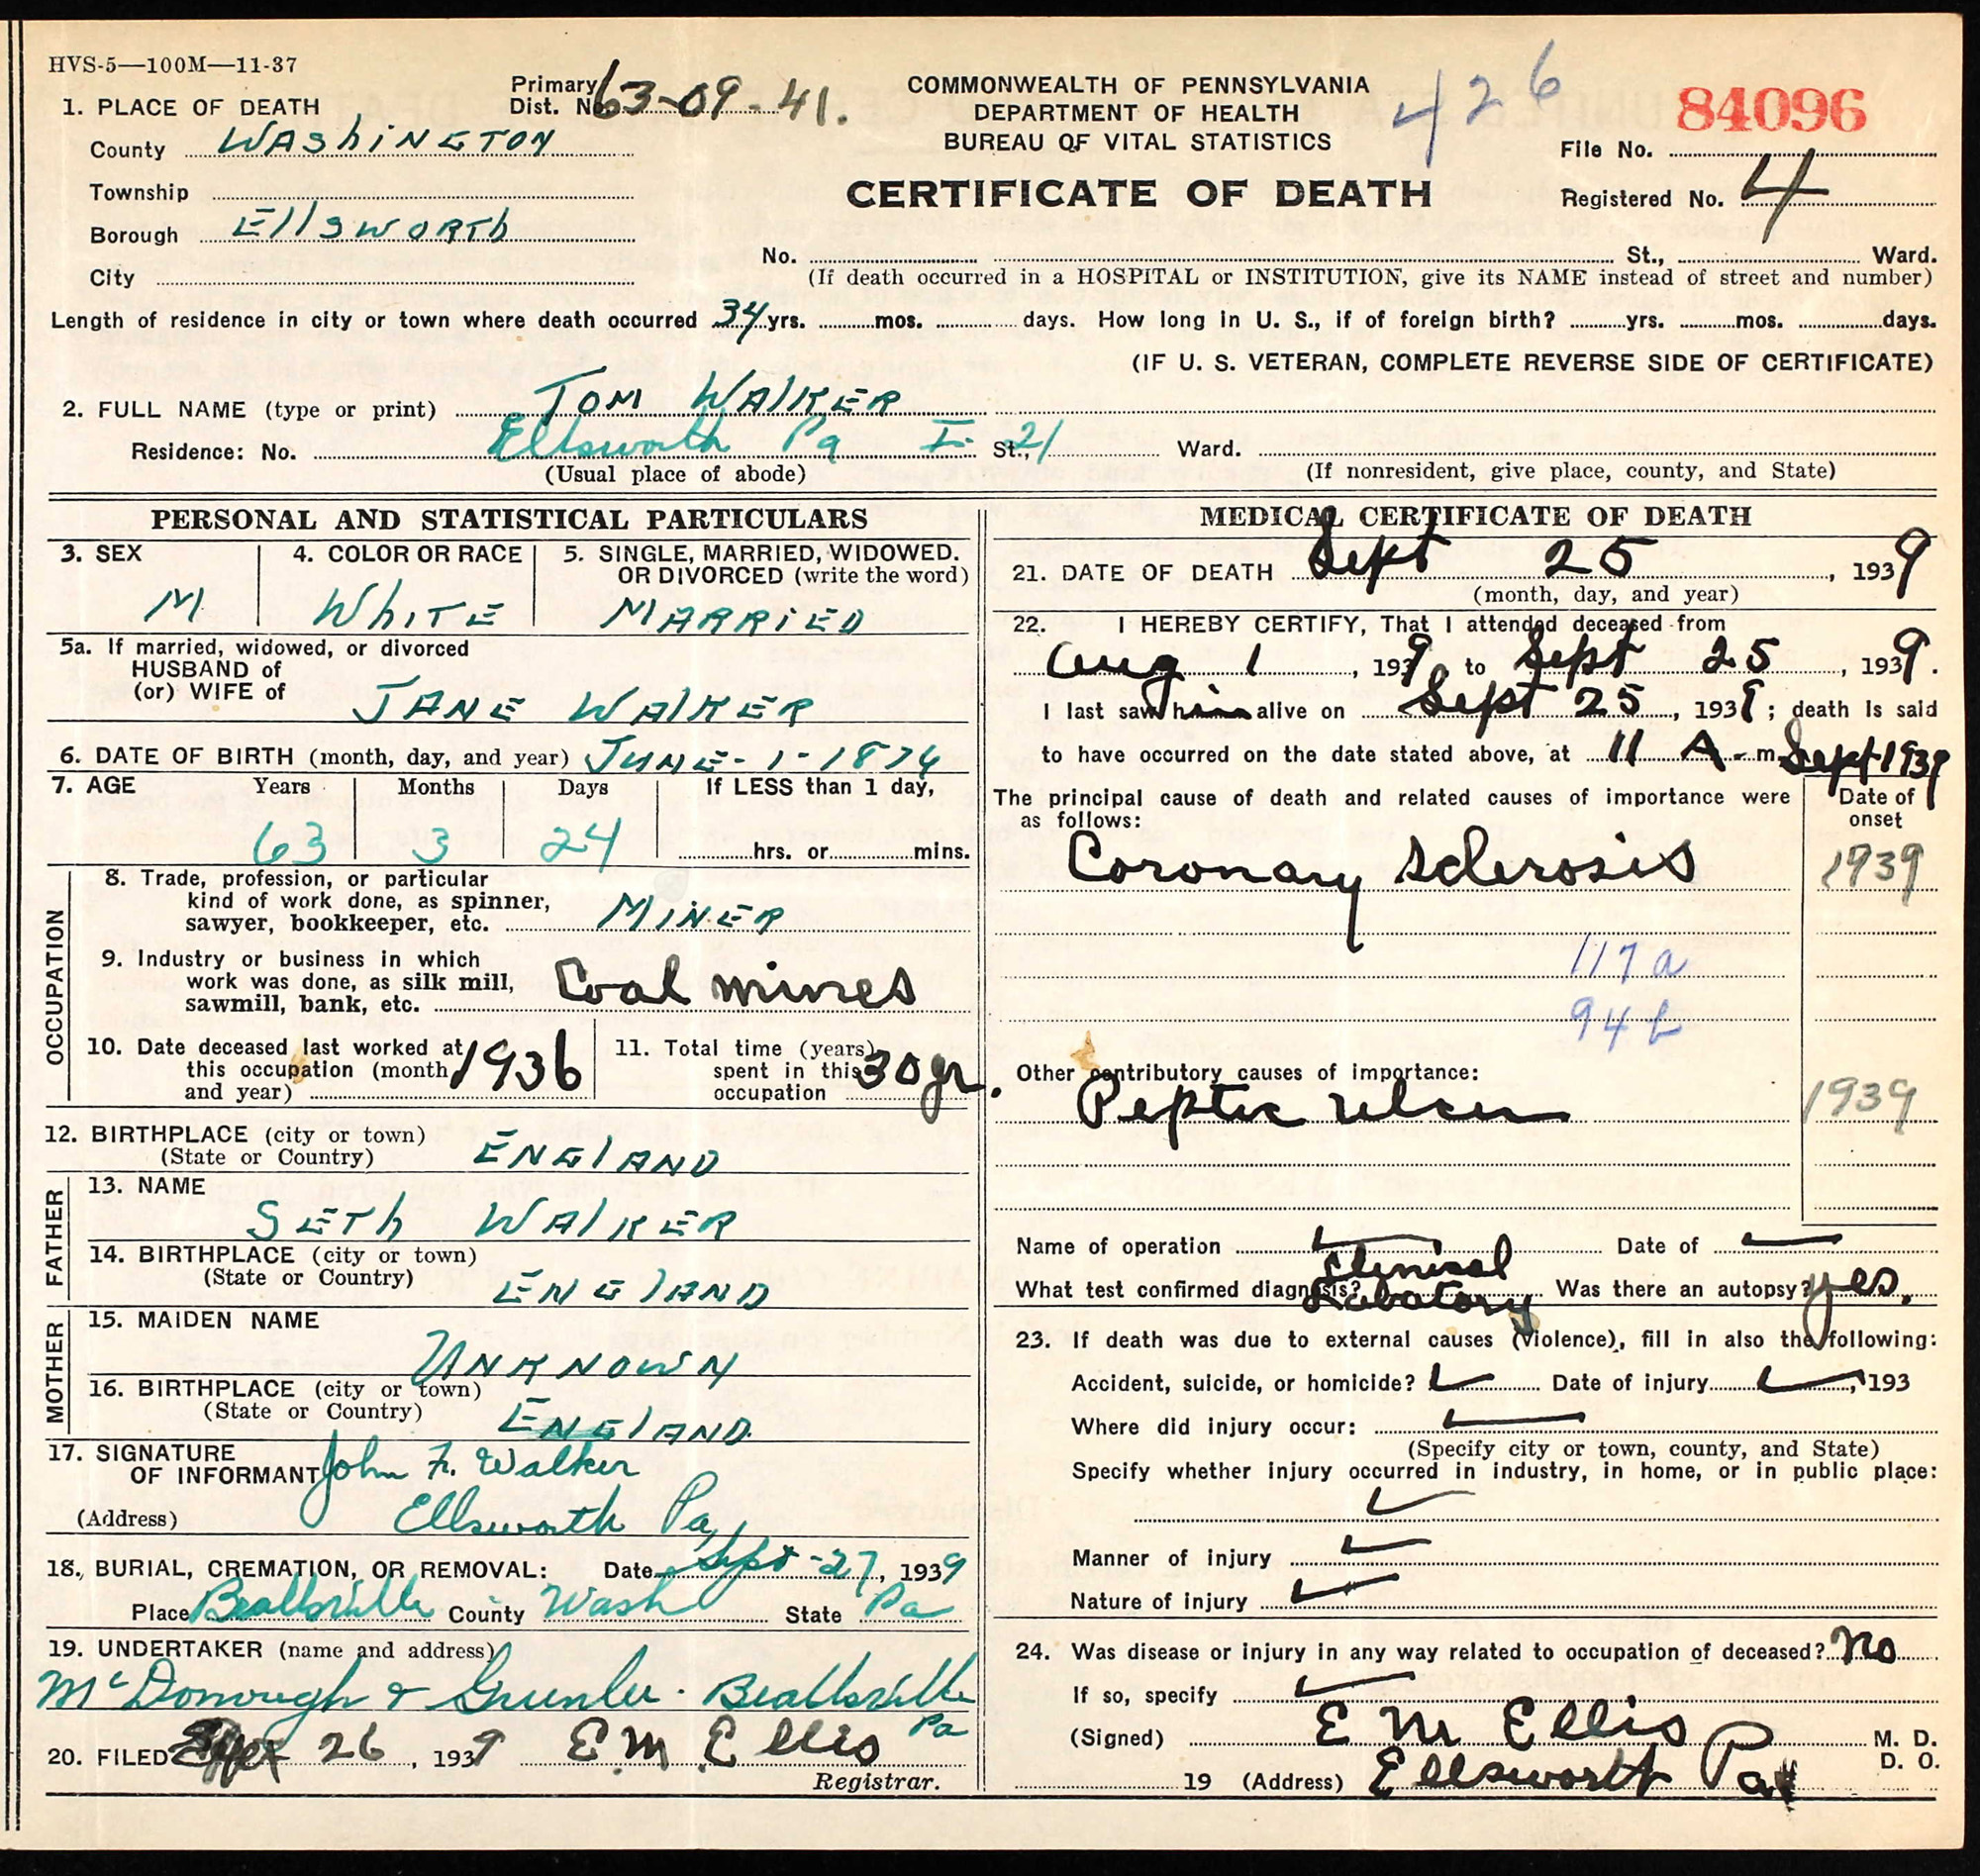 HVS-5—100M—11-37
Primary Dist. No. 63-09-41.
COMMONWEALTH OF PENNSYLVANIA
DEPARTMENT OF HEALTH
BUREAU OF VITAL STATISTICS
CERTIFICATE OF DEATH
426
84096
File No.
Registered No. 4
1. PLACE OF DEATH
County WAShiNGTON
Township
Borough EllSWORTh
City
No. St., Ward.
(If death occurred in a HOSPITAL or INSTITUTION, give its NAME instead of street and number)
Length of residence in city or town where death occurred 34 yrs. mos. days. How long in U. S., if of foreign birth? yrs. mos. days.
(IF U. S. VETERAN, COMPLETE REVERSE SIDE OF CERTIFICATE)
2. FULL NAME (type or print) TOM WAlKER
Residence: No. Ellsworth Pa I. St., 21 Ward.
(Usual place of abode) (If nonresident, give place, county, and State)
PERSONAL AND STATISTICAL PARTICULARS
3. SEX 4. COLOR OR RACE 5. SINGLE, MARRIED, WIDOWED.
OR DIVORCED (write the word)
M WhiTE MARRiED
5a. If married, widowed, or divorced
HUSBAND of
(or) WIFE of JANE WAlKER
6. DATE OF BIRTH (month, day, and year) JUNE-1-1876
7. AGE Years Months Days If LESS than 1 day,
63 3 24 hrs. or mins.
OCCUPATION
8. Trade, profession, or particular
kind of work done, as spinner,
sawyer, bookkeeper, etc. MiNER
9. Industry or business in which
work was done, as silk mill,
sawmill, bank, etc. Coal mines
10. Date deceased last worked at
this occupation (month
and year) 1936
11. Total time (years)
spent in this
occupation 30 yr.
12. BIRTHPLACE (city or town)
(State or Country) ENGlAND
FATHER
13. NAME
SETh WAlKER
14. BIRTHPLACE (city or town)
(State or Country) ENGlAND
MOTHER
15. MAIDEN NAME
UNKNOWN
16. BIRTHPLACE (city or town)
(State or Country) ENGlAND.
17. SIGNATURE
OF INFORMANT John F. Walker
(Address) Ellsworth Pa
18. BURIAL, CREMATION, OR REMOVAL: Date Sept-27, 1939
Place Beallsville County Wash State Pa
19. UNDERTAKER (name and address)
McDonough & Beallsville
Pa
20. FILED Sept 26, 1939 E. M. Ellis
Registrar.
MEDICAL CERTIFICATE OF DEATH
21. DATE OF DEATH Sept 25, 1939
(month, day, and year)
22. I HEREBY CERTIFY, That I attended deceased from
Aug 1, 1939 to Sept 25, 1939.
I last saw him alive on Sept 25, 1939; death is said
to have occurred on the date stated above, at 11 A. m. Sept 1939
The principal cause of death and related causes of importance were
as follows:
Date of
onset
Coronary Sclerosis 1939
117a
94b
Other contributory causes of importance:
Peptic ulcer 1939
Name of operation Date of
What test confirmed diagnosis? Clinical Labatory Was there an autopsy? yes.
23. If death was due to external causes (violence), fill in also the following:
Accident, suicide, or homicide? Date of injury , 193
Where did injury occur:
(Specify city or town, county, and State)
Specify whether injury occurred in industry, in home, or in public place:
Manner of injury
Nature of injury
24. Was disease or injury in any way related to occupation of deceased? No
If so, specify
(Signed) E M Ellis M. D.
D. O.
19 (Address) Ellsworth Pa